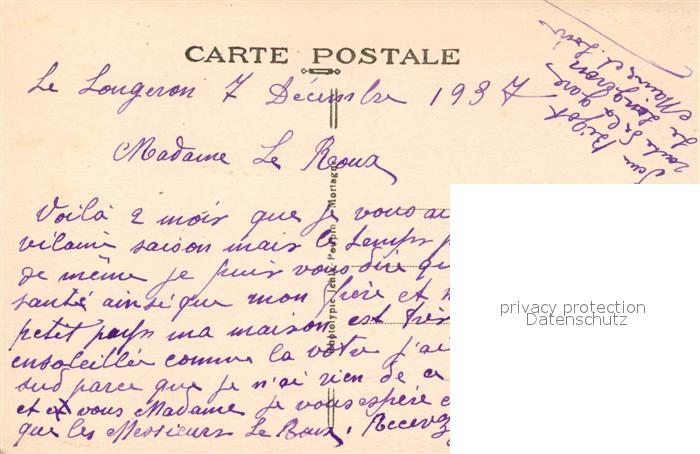 CARTE POSTALE
Le Longeron 7 Décembre 1937
Jean
route de la gare
Le Longeron
Maine et Loire
Madame Le Roux
Voilà 2 mois que je vous ai
vilaine saison mais le temps p
de même je puis vous dire qu
santé ainsi que mon frère et
petit pays ma maison est très
ensoleillée comme la votre j'ai
sud parce que je n'ai rien de ce
et vous Madame je vous espère
que les Messieurs Le Roux. Recevez
Phototypie Jehly Poupin Mortagne
privacy protection
Datenschutz